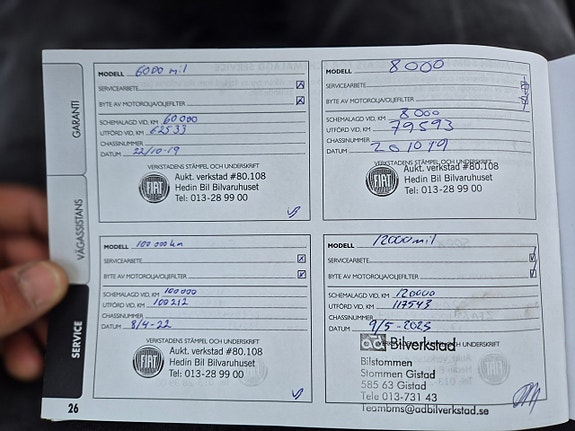 GARANTI
VÄGASSISTANS
SERVICE
26
MODELL 6000 mil
SERVICEARBETE
BYTE AV MOTOROLJA/OLJEFILTER
SCHEMALAGD VID, KM 60000
UTFÖRD VID, KM 62533
CHASSINUMMER
DATUM 22/10-19
VERKSTADENS STÄMPEL OCH UNDERSKRIFT
FIAT
Aukt. verkstad #80.108
Hedin Bil Bilvaruhuset
Tel: 013-28 99 00
MODELL 8000
SERVICEARBETE
BYTE AV MOTOROLJA/OLJEFILTER
SCHEMALAGD VID, KM 8000
UTFÖRD VID, KM 79593
CHASSINUMMER
DATUM 201019
VERKSTADENS STÄMPEL OCH UNDERSKRIFT
FIAT
Aukt. verkstad #80.108
Hedin Bil Bilvaruhuset
Tel: 013-28 99 00
MODELL 100 000 km
SERVICEARBETE
BYTE AV MOTOROLJA/OLJEFILTER
SCHEMALAGD VID, KM 100000
UTFÖRD VID, KM 100212
CHASSINUMMER
DATUM 8/4-22
VERKSTADENS STÄMPEL OCH UNDERSKRIFT
FIAT
Aukt. verkstad #80.108
Hedin Bil Bilvaruhuset
Tel: 013-28 99 00
MODELL 12000 mil
SERVICEARBETE
BYTE AV MOTOROLJA/OLJEFILTER
SCHEMALAGD VID, KM 120000
UTFÖRD VID, KM 117543
CHASSINUMMER
DATUM 9/5-2023
UNDERSKRIFT
ad Bilverkstad
Bilstommen
Stommen Gistad
585 63 Gistad
Tele 013-731 43
Teambms@adbilverkstad.se